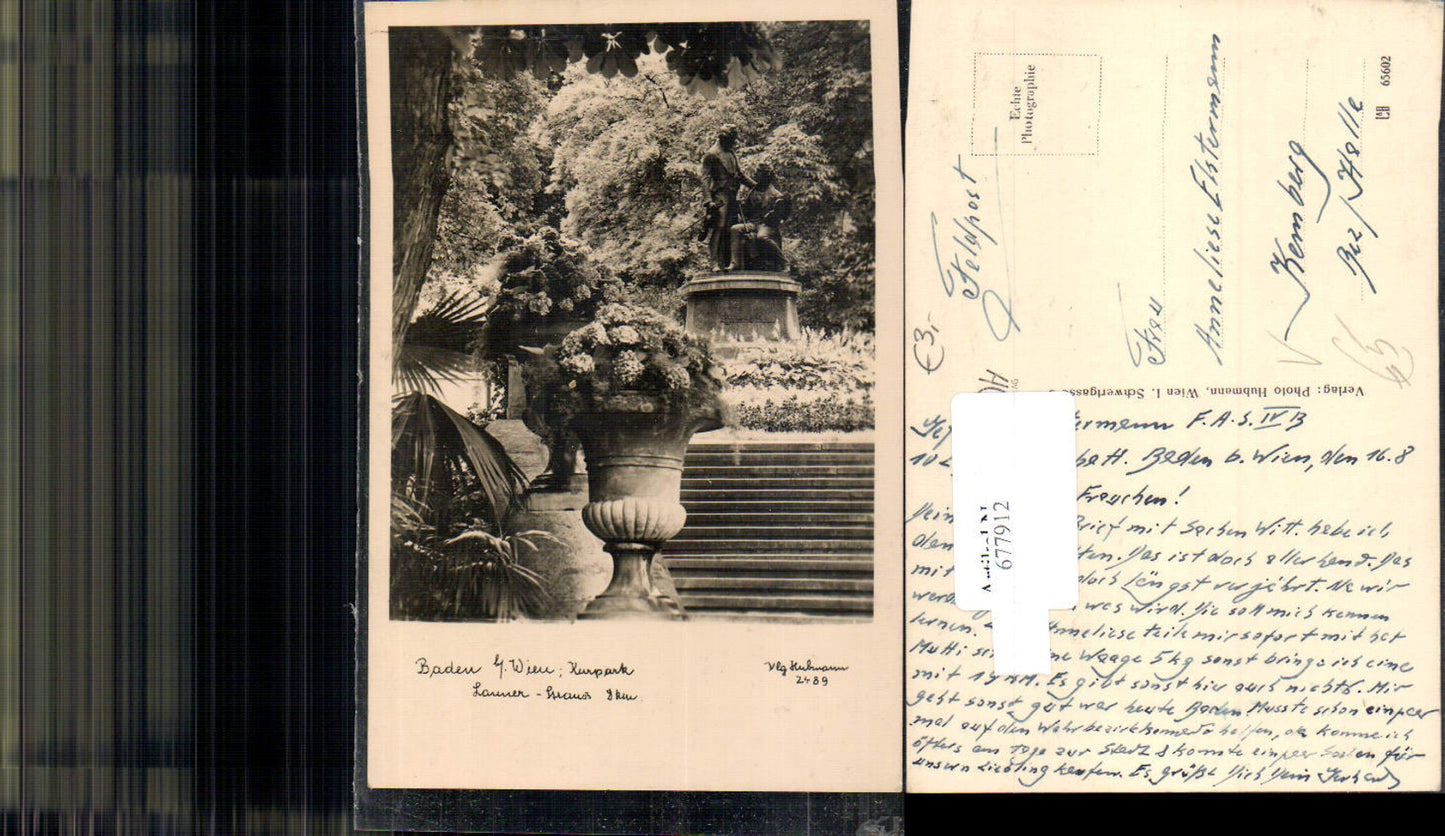 Baden b/ Wien; Kurpark
Lanner - Strauss Dkm.
Vlg Hubmann
2489
Echte
Photographie
65602
Feldpost
Frau
Anneliese Elstermann
Kemberg
bei Halle
€3,-
Verlag: Photo Hubmann, Wien I. Schwertgasse
ermann F.A.S. IV B
10 Baden b. Wien, den 16.8
Frauchen!
Dein Brief mit Sachen Witt. habe ich
den ten. Das ist doch allerhand. Das
mit doch längst verjährt. Na wir
werd was wird. Die soll mich kennen
lernen. Anneliese teile mir sofort mit hat
Mutti ne Waage 5 kg sonst bringe ich eine
mit RM. Es gibt sonst hier auch nichts. Mir
geht sonst gut war heute Baden. Musste schon einpaar
mal auf dem Wehrbezirkskomando helfen, da komme ich
öfters am Tage zur Stadt & konnte einpaar Sachen für
unsern Liebling kaufen. Es grüßt Dich Dein Gerhard
677912